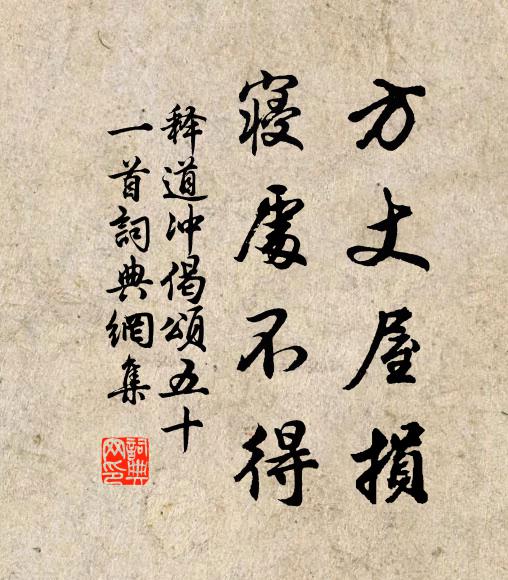 方丈屋損
寢處不得
释道冲偈頌五十
一首詞典網集
詞典网印